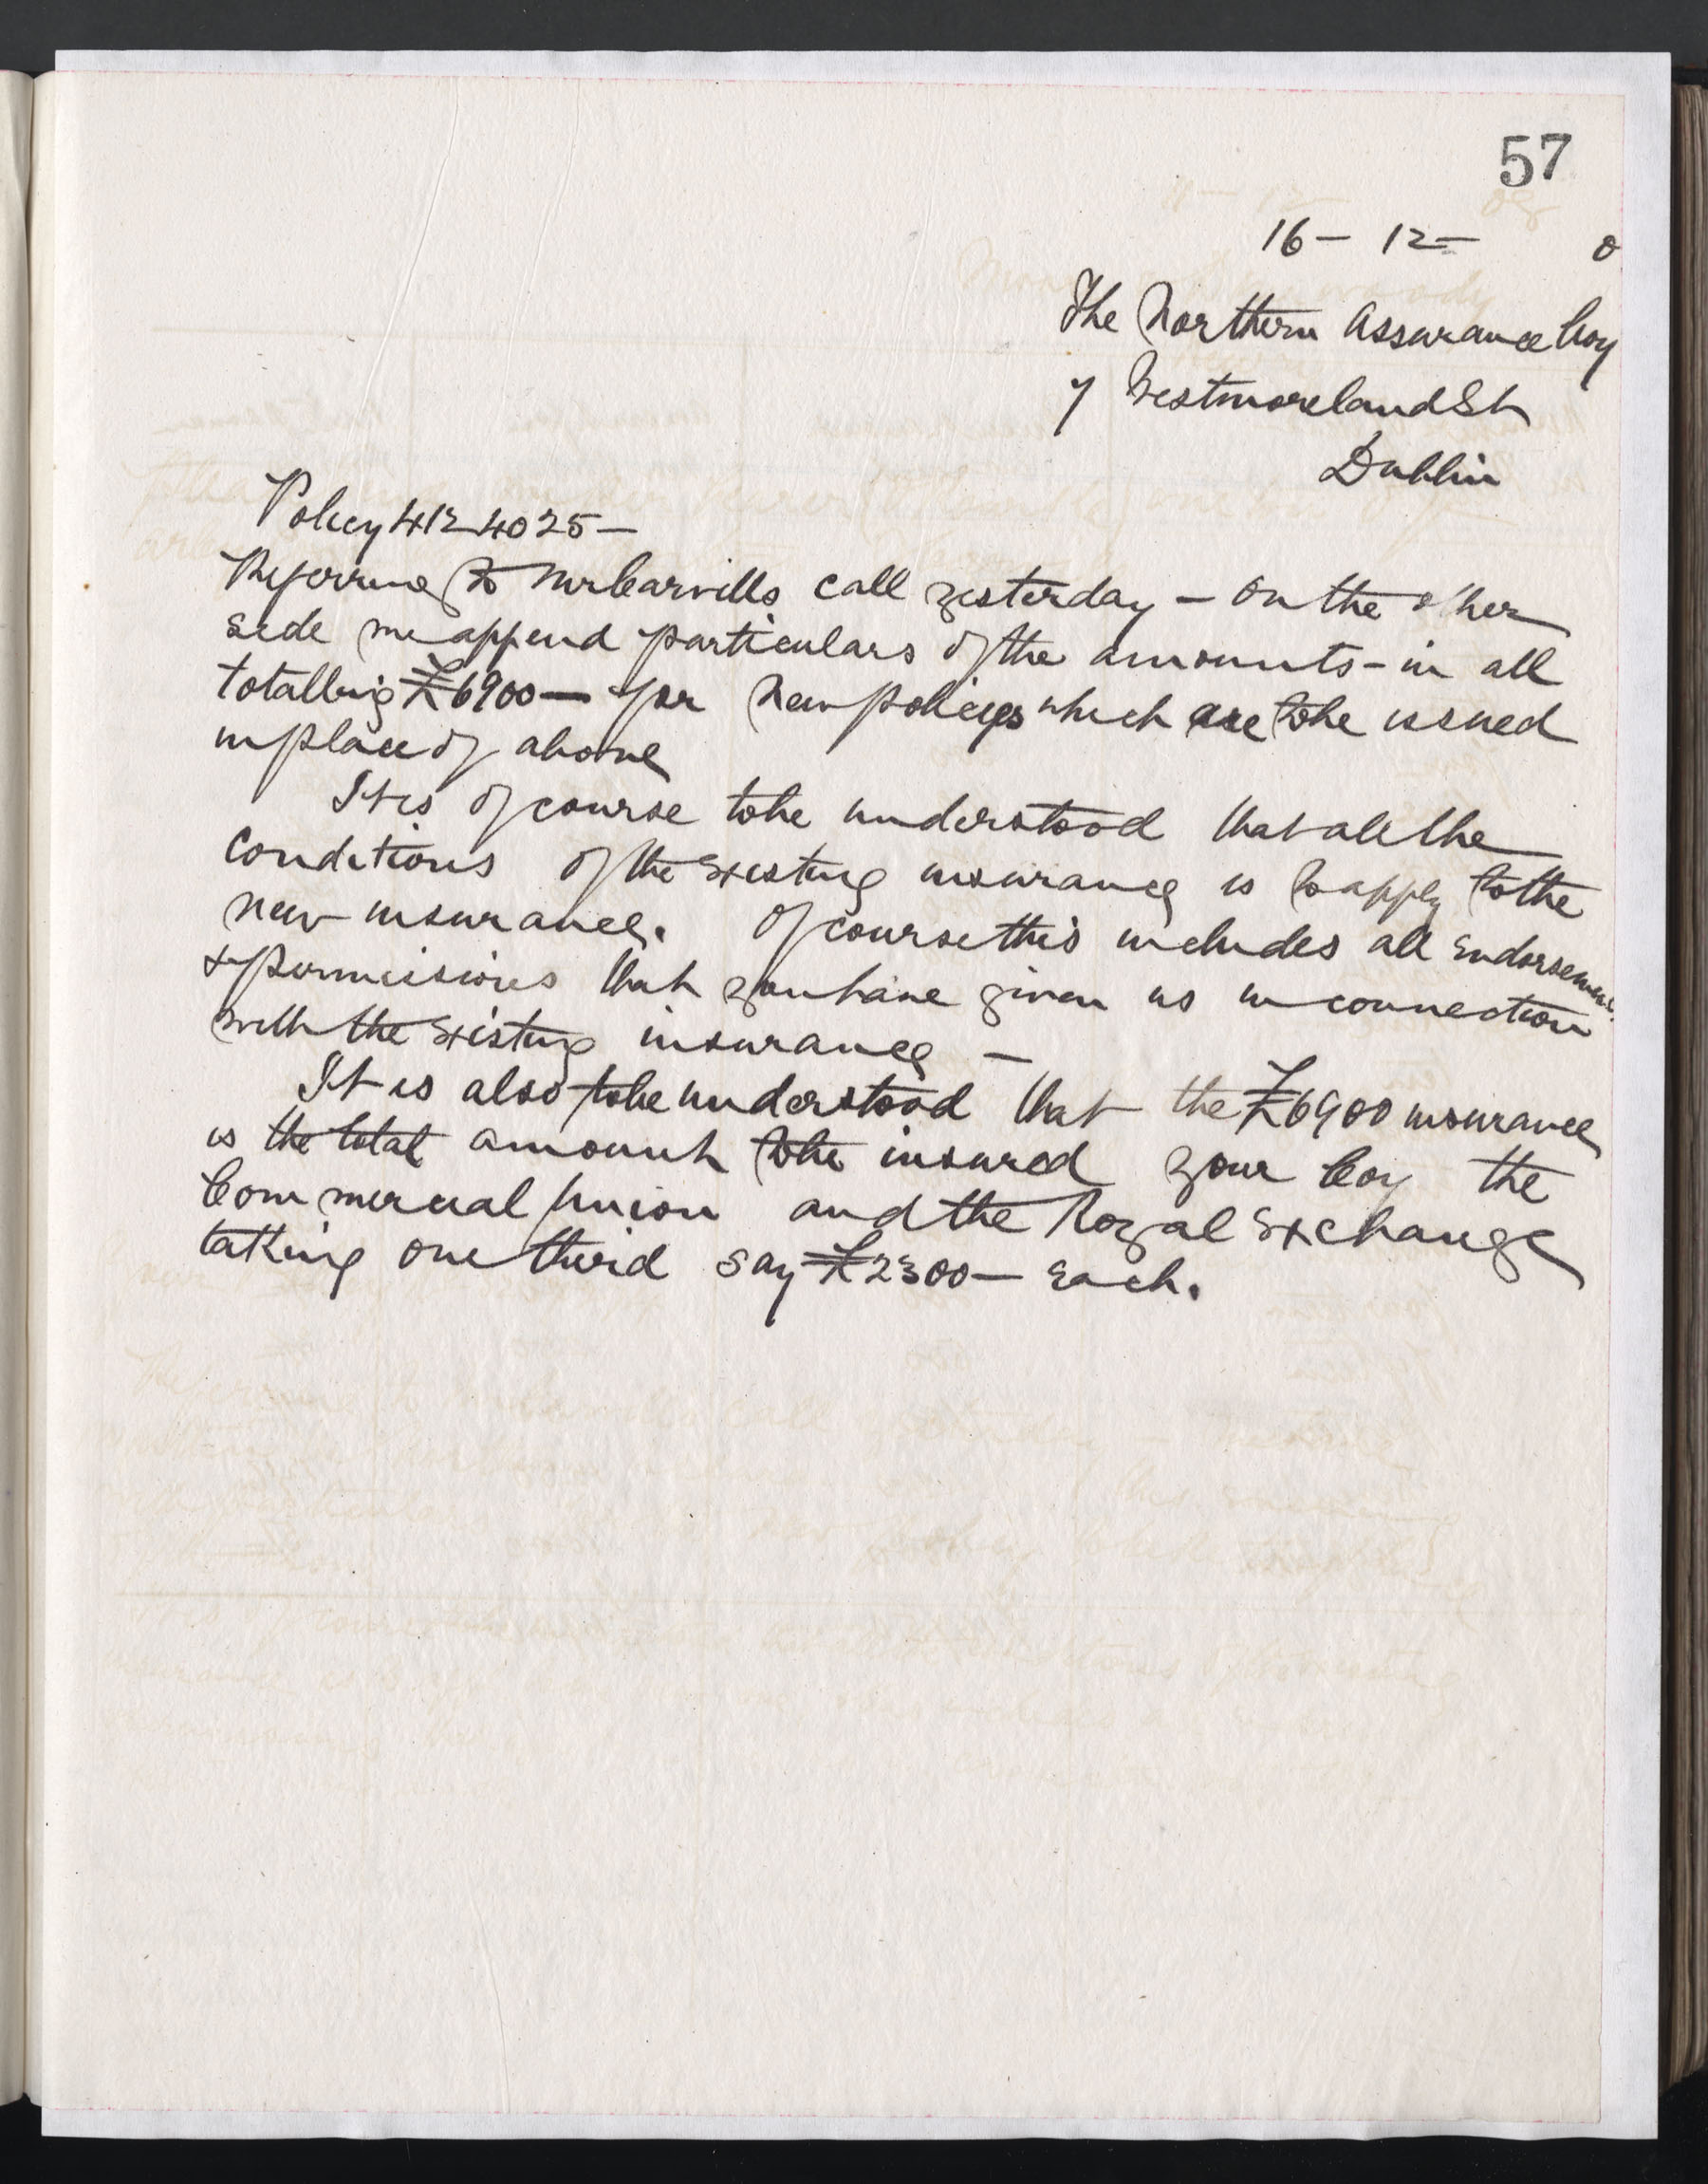 57
16 - 12 - 0
The Northern Assurance Coy
7 Westmoreland St
Dublin
Policy 4124025 -
Referring to Mr Carvills call yesterday - On the other
side we append particulars of the amounts - in all
totalling £6900 - for new policys which are to be issued
in place of above
It is of course to be understood that all the
conditions of the existing insurance is to apply to the
new insurance. Of course this includes all endorsements
& permissions that you have given us in connection
with the existing insurance -
It is also to be understood that the £6900 insurance
is the total amount to be insured your Coy the
Commercial Union and the Royal Exchange
taking one third say £2300 - each.